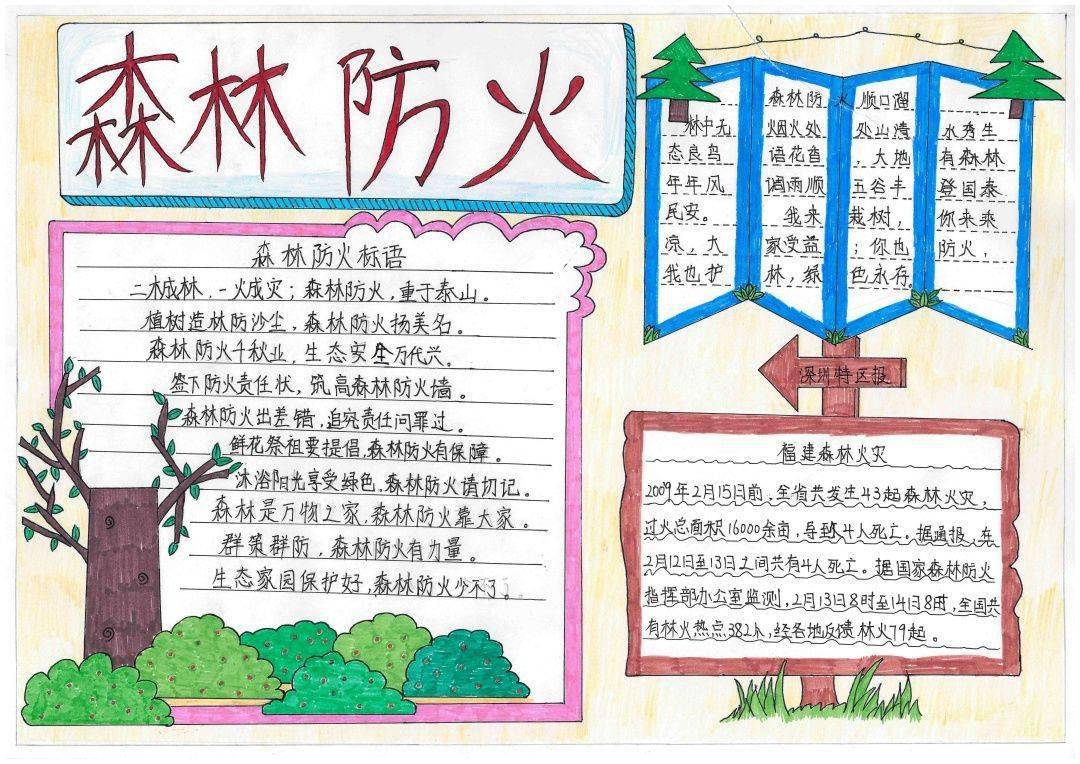 森林防火
森林防火标语
二木成林，一火成灾；森林防火，重于泰山。
植树造林防沙尘，森林防火扬美名。
森林防火千秋业，生态安全万代兴。
签下防火责任状，筑高森林防火墙。
森林防火出差错，追究责任问罪过。
鲜花祭祖要提倡，森林防火有保障。
沐浴阳光享受绿色，森林防火请切记。
森林是万物之家，森林防火靠大家。
群策群防，森林防火有力量。
生态家园保护好，森林防火少不了。
森林防火顺口溜
林中无烟火处处山清水秀生
态良鸟语花香，大地有森林
年年风调雨顺五谷丰登国泰
民安。我来栽树，你来乘
凉，大家受益；你也防火，
我也护林，绿色永存
深圳特区报
福建森林火灾
2009年2月15日前，全省共发生43起森林火灾，
过火总面积16000余亩，导致4人死亡。据通报，在
2月12日至13日之间共有4人死亡。据国家森林防火
指挥部办公室监测，2月13日8时至14日8时，全国共
有林火热点382个，经各地反馈林火79起。